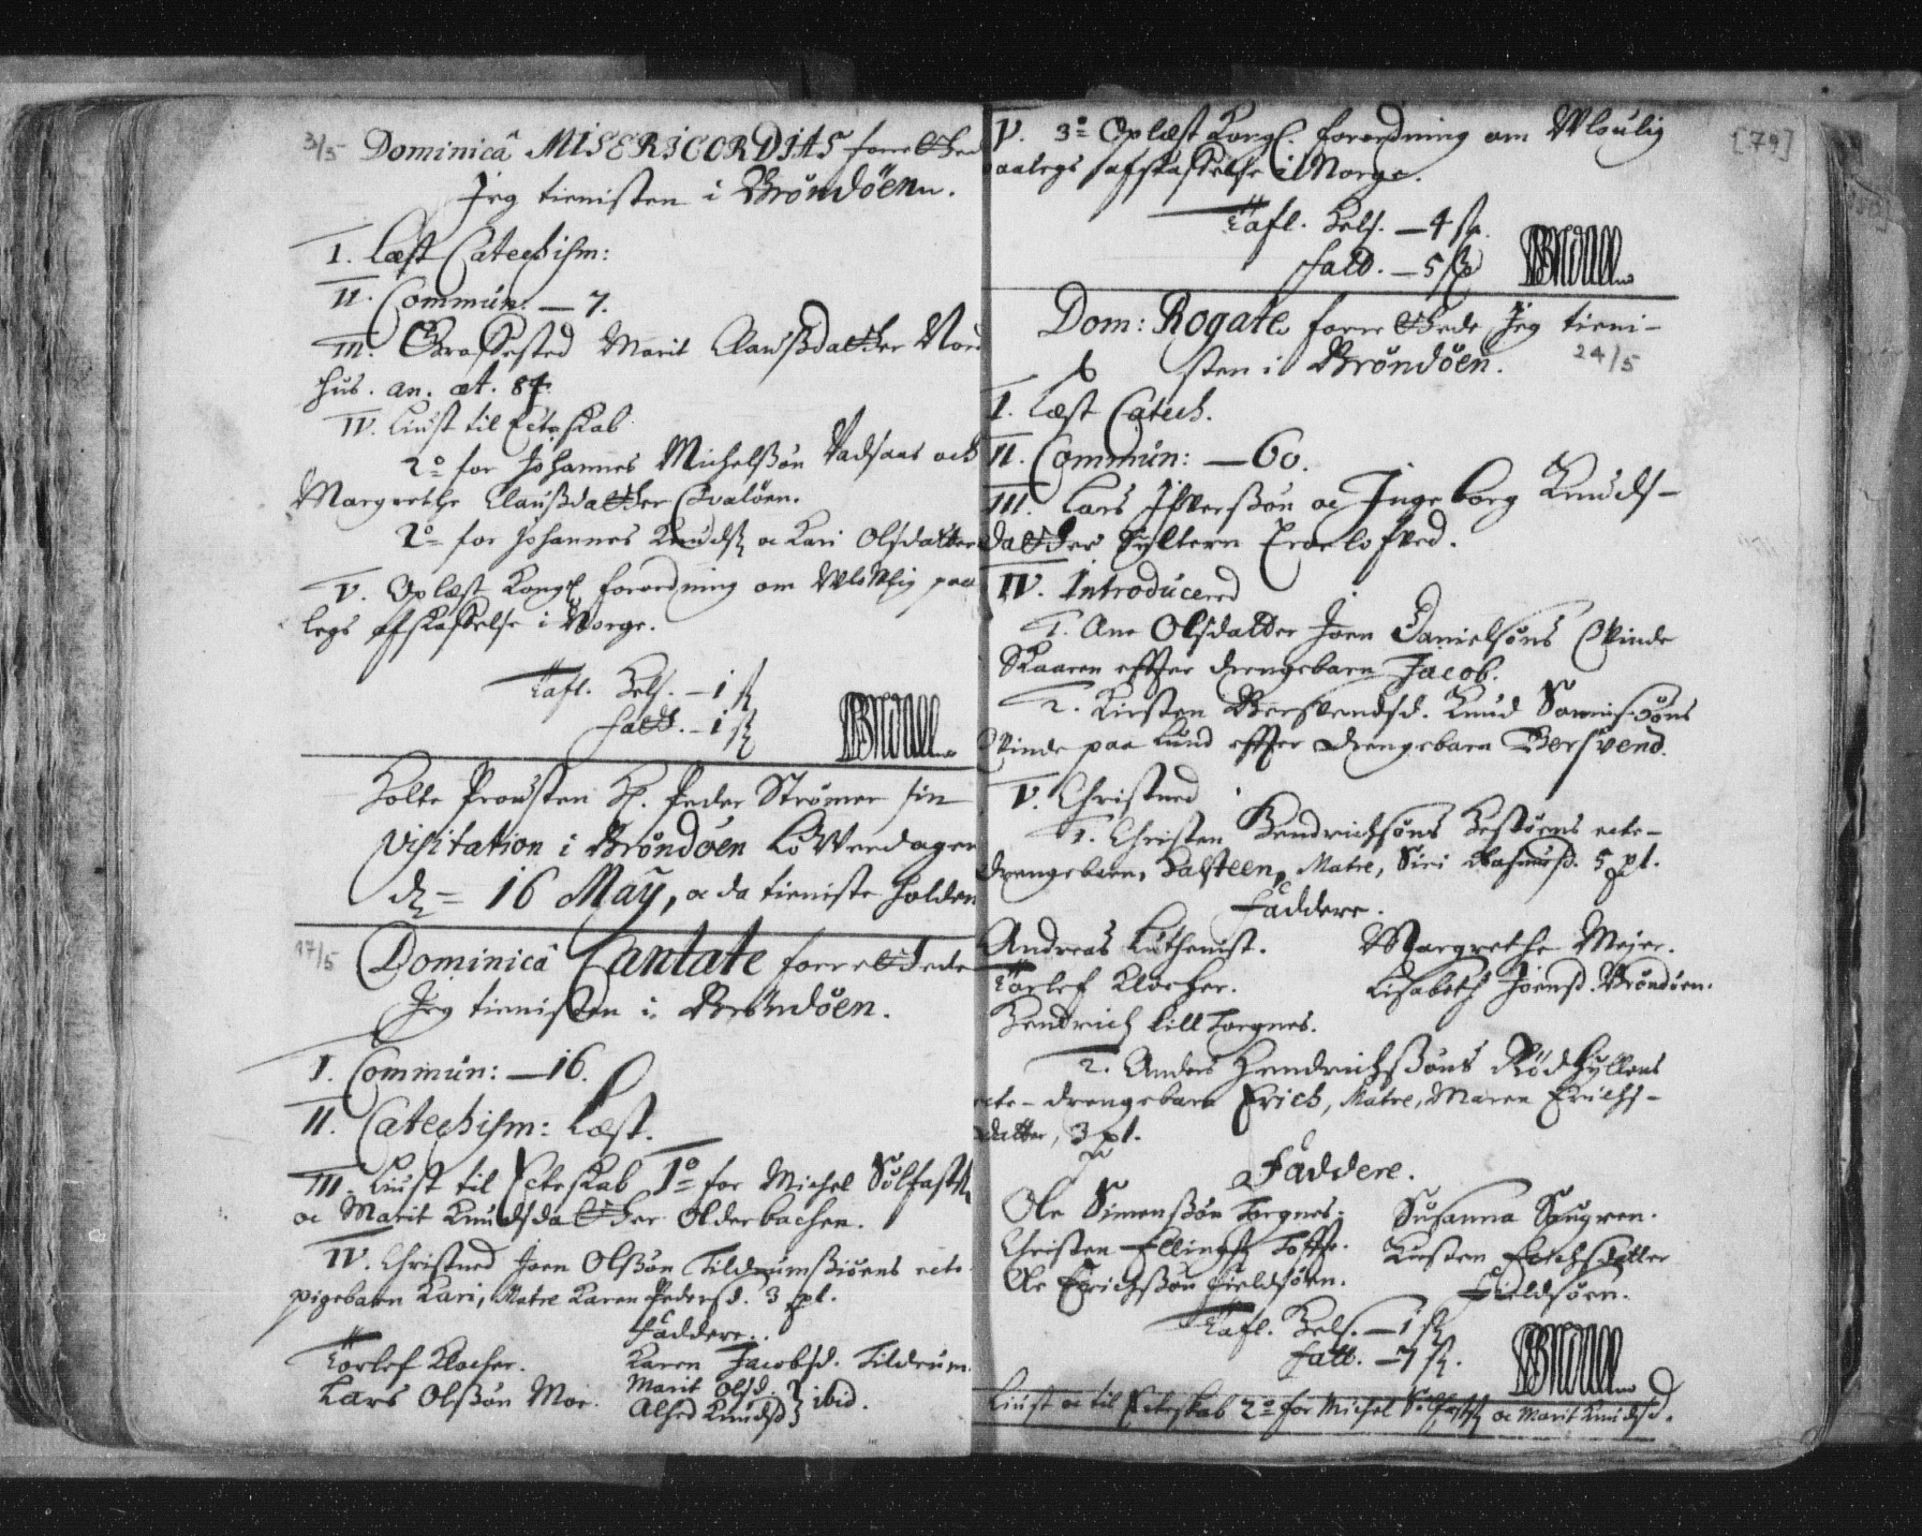 3/5 Dominicâ MISERICORDIAS forretted
Jeg tienisten i Brøndøenn.
I. Læst Catechism:
II. Commun: — 7.
III. Graffested Marit Clausdatter Nord
hus. an. æt. 84.
IV. Liust til Ecteskab
2º for Johannes Michelssøn Vadsaas och
Margrethe Clausdatter Qvaløen.
2º for Johannes Knuds. oc Kari Olsdatter
V. Oplæst Kongl. forordning om Ulovlig paa
legs afskaffelse i Norge.
Tafl. Hels. — 1 s
fatt. — 1 s
Holte Prousten H. Peder Strømer sin
Visitation i Brøndøen Løverdagen
d. = 16 Maÿ, oc da tieniste holden
17/5 Dominicâ Cantate forrettede
Jeg tienisten i Brøndøen.
I. Commun: — 16.
II. Catechism: Læst.
III. Liust til Ecteskab 1º for Michel Solfasts.
oc Marit Knudsdatter Olderbachen.
IV. Christned Joen Olssøn Tildrumsskiøens ecte
pigebarn Kari, Matre Karen Pedersd. 3 pt.
Faddere.
Torlef Klocher. Karen Jacobsd. Tildrum.
Lars Olssøn Moe. Marit Olsd. } ibid.
Knudsd
[79]
V. 3º Oplæst Kongl. forordning om Ulovlig
paalegs afskaffelse i Norge.
Tafl. Hels. — 4 s.
fatt. — 5 s
Dom: Rogate forrettede Jeg tieni-
sten i Brøndøen. 24/5
I. Læst Catech.
II. Commun: — 60.
III. Lars Ifverssøn oc Ingeborg Knuds-
datter Sÿltern Troelofved.
IV. Introducered
1. Ane Olsdatter Joen Danielsøns Qvinde
Skaaren effter drengebarn Jacob.
2. Kirsten Bersvendsd. Knud
Qvinde paa Lund effter drengebarn Bersvend.
V. Christned
1. Christen Hendrichsøns Hestøens ecte-
drengebarn, Halsteen, Matre, Siri Rasmusd. 5 pt.
Faddere.
Andreas Margrethe Mejer.
Torlef Klocher. Lisabeth Joensd. Brøndøen.
Hendrich Lill Torgnes.
2. Anders Hendrichssøns Rødhyllens
ecte-drengebarn Erich, Matre, Maren Erichs-
datter, 3 pt.
Faddere.
Ole Simenssøn Torgnes. Susanna Spugren.
Christen Ellings. Tofte. Kirsten Erichsdatter
Ole Erichssøn Fieldsøen. Fieldsøen.
Tafl. Hels. — 1 s
fatt. — 7 s.
Liust oc til Ecteskab 2º for Michel Solfasts. oc Marit Knudsd.